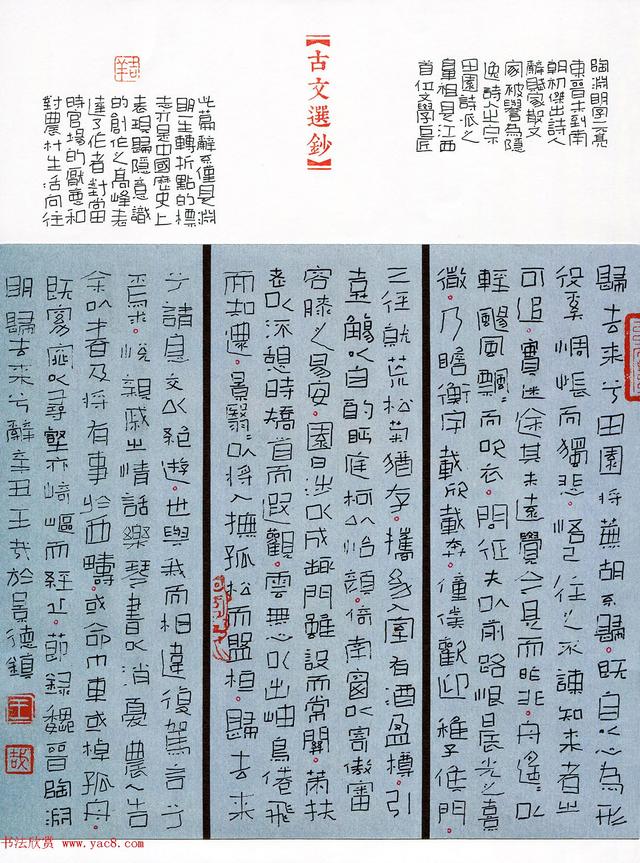 陶淵明字元亮
東晉末到南
朝初傑出詩人
辭賦家散文
家被譽為隱
逸詩人之宗
田園詩派之
鼻祖是江西
首位文學巨匠
【古文選鈔】
此篇辭系僅是淵
明一生轉折點的標
志亦是中國歷史上
表現歸隱意識
的創作之高峰表
達了作者對當
時官場的厭惡和
對農村生活向往
歸去來兮田園將蕪胡不歸。既自以心為形
役奚惆悵而獨悲。悟已往之不諫知來者之
可追。實迷途其未遠覺今是而昨非。舟遙遙以
輕颺風飄飄而吹衣。問征夫以前路恨晨光之熹
微。乃瞻衡宇載欣載奔。僮僕歡迎稚子候門
三徑就荒松菊猶存。攜幼入室有酒盈樽。引
壺觴以自酌眄庭柯以怡顏。倚南窗以寄傲審
容膝之易安。園日涉以成趣門雖設而常關。策扶
老以流憩時矯首而遐觀。雲無心以出岫鳥倦飛
而知還。景翳翳以將入撫孤松而盤桓。歸去來
兮請息交以絕遊。世與我而相違復駕言兮
焉求。悅親戚之情話樂琴書以消憂。農人告
余以春及將有事於西疇。或命巾車或棹孤舟。
既窈窕以尋壑亦崎嶇而經丘。節錄魏晉陶淵
明歸去來兮辭辛丑王哉於景德鎮
王
哉
书法欣赏 www.yac8.com